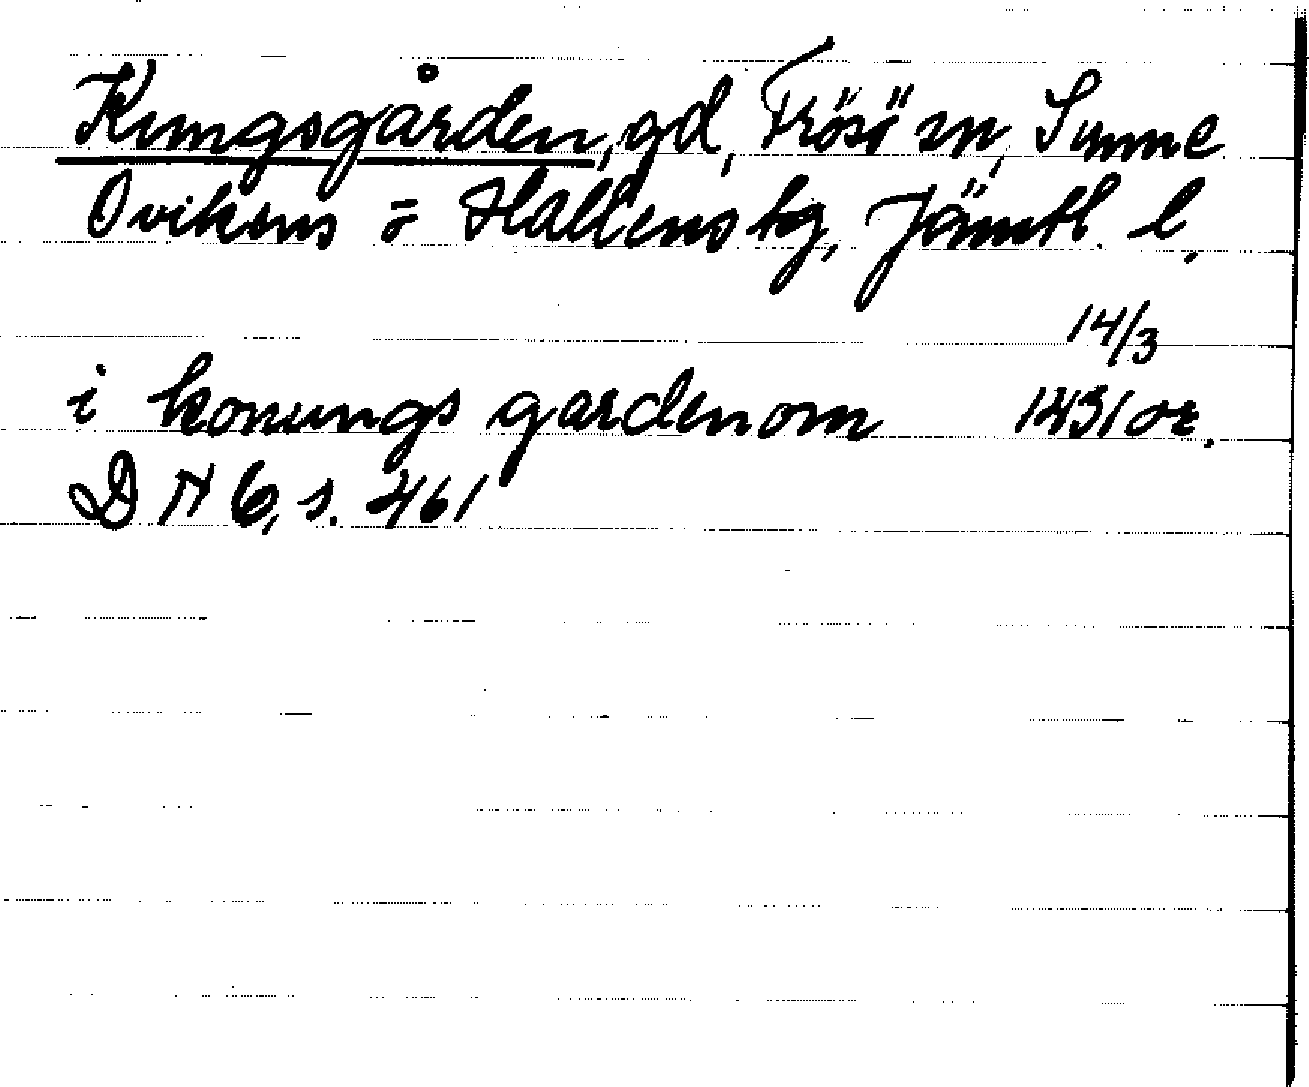 Kungsgården, gd, Frösö sn, Sunne
Ovikens o Hallens tg, Jämtl. l.
14/3
i konungs gardenom 1431 or.
DN 6, s. 461